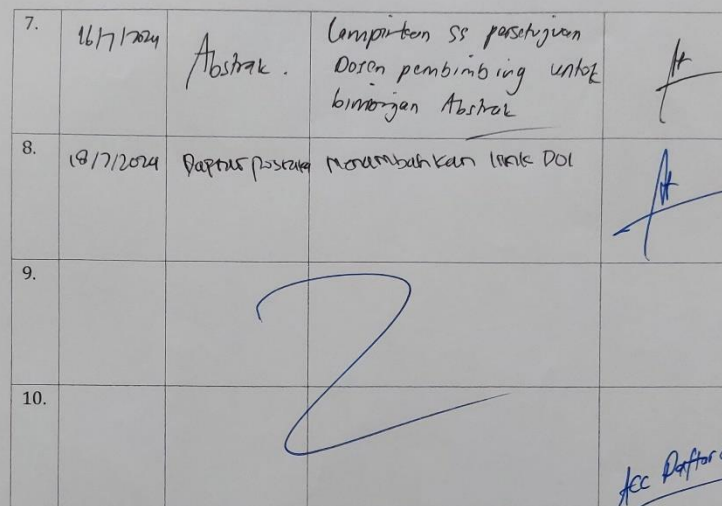 7.
16/7/2024
Abstrak.
Lampirkan ss persetujuan
Dosen pembimbing untuk
bimbingan Abstrak
8.
18/7/2024
Daptar pustaka
Menambahkan link DOI
9.
10.
Acc Daftar